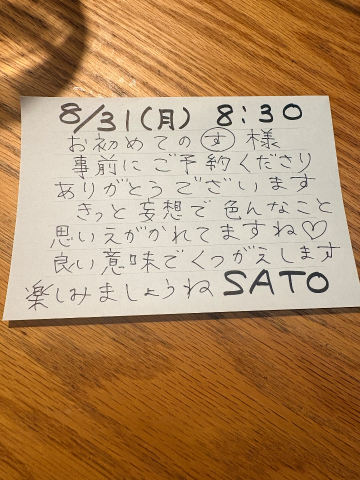 8/31(月) 8:30
お初めての す 様
事前にご予約くださり
ありがとうございます
きっと妄想で色んなこと
思いえがかれてますね♡
良い意味でくつがえします
楽しみましょうね SATO